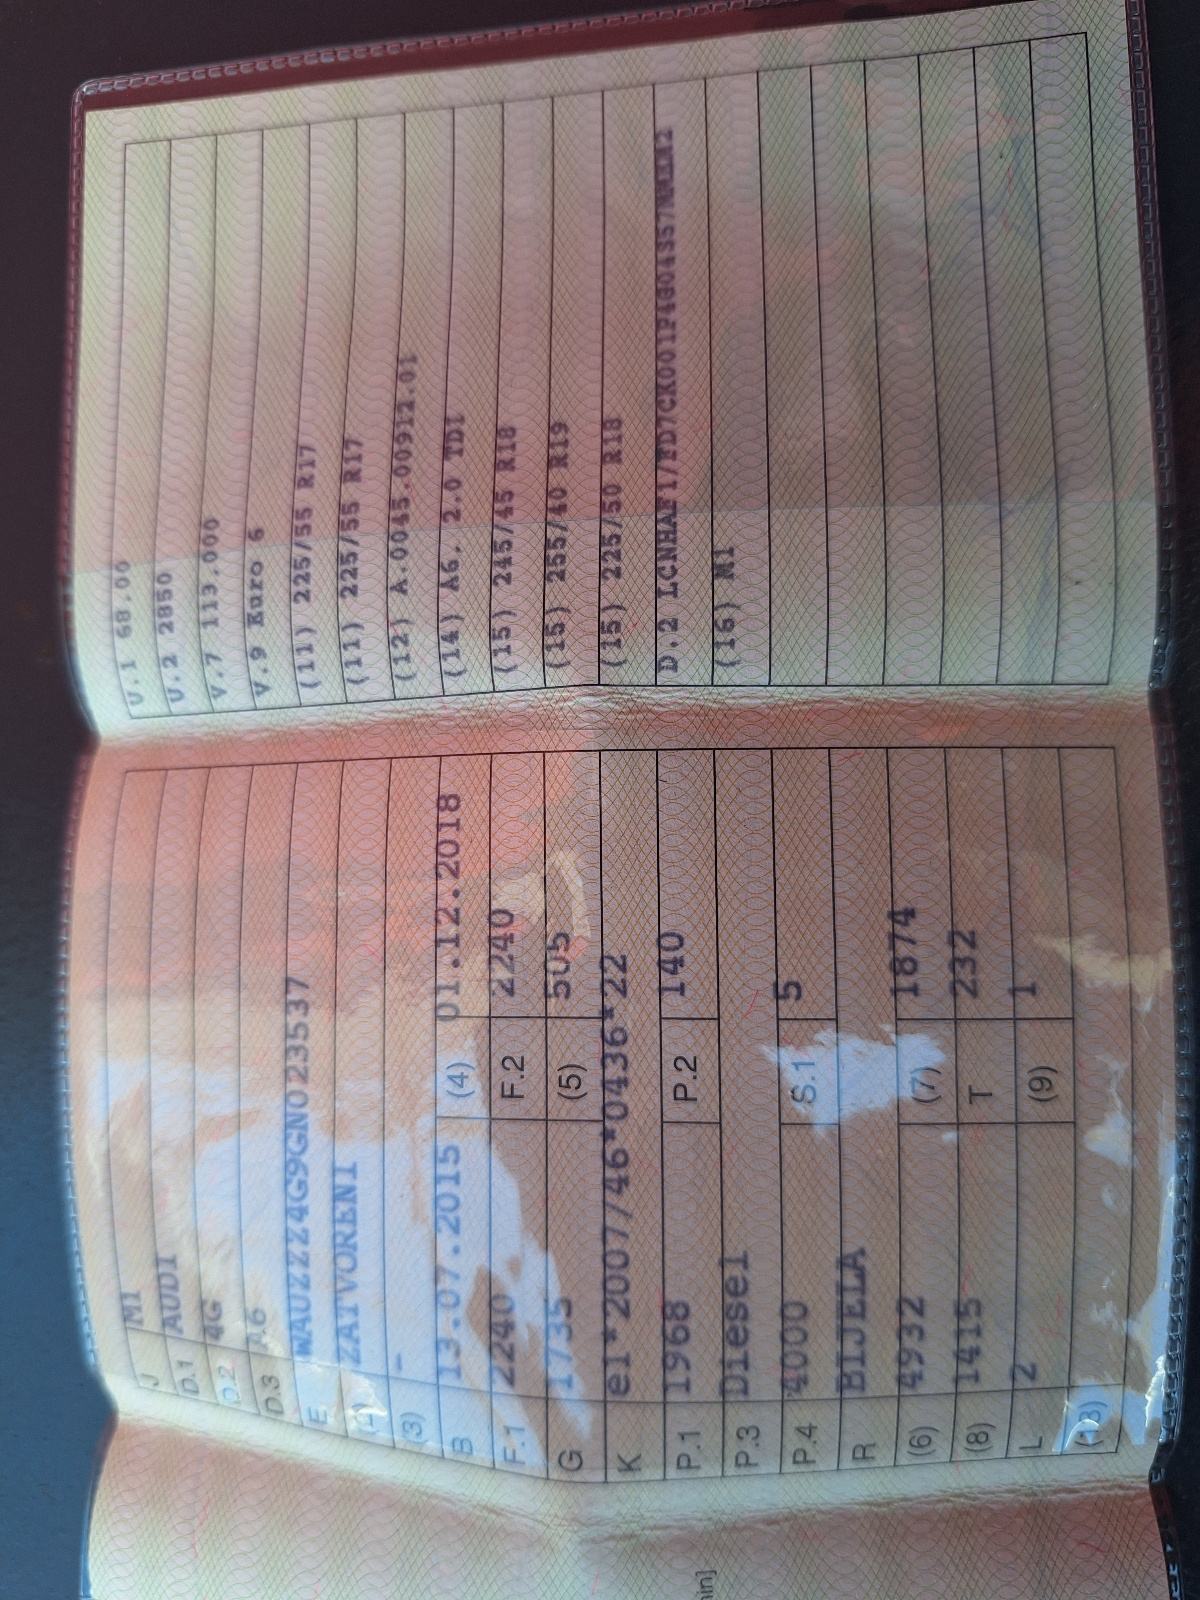 J M1
D.1 AUDI
D.2 4G
D.3 A6
E WAUZZZ4G9GN023537
ZATVORENI
(3) -
B 13.07.2015 (4) 01.12.2018
F.1 2240 F.2 2240
G 1735 (5) 505
K e1*2007/46*0436*22
P.1 1968 P.2 140
P.3 Diesel
P.4 4000 S.1 5
R BIJELA
(6) 4932 (7) 1874
(8) 1415 T 232
L 2 (9) 1
U.1 68.00
U.2 2850
V.7 113.000
V.9 Euro 6
(11) 225/55 R17
(11) 225/55 R17
(12) A.0045.00912.01
(14) A6. 2.0 TDI
(15) 245/45 R18
(15) 255/40 R19
(15) 225/50 R18
D.2
(16) M1